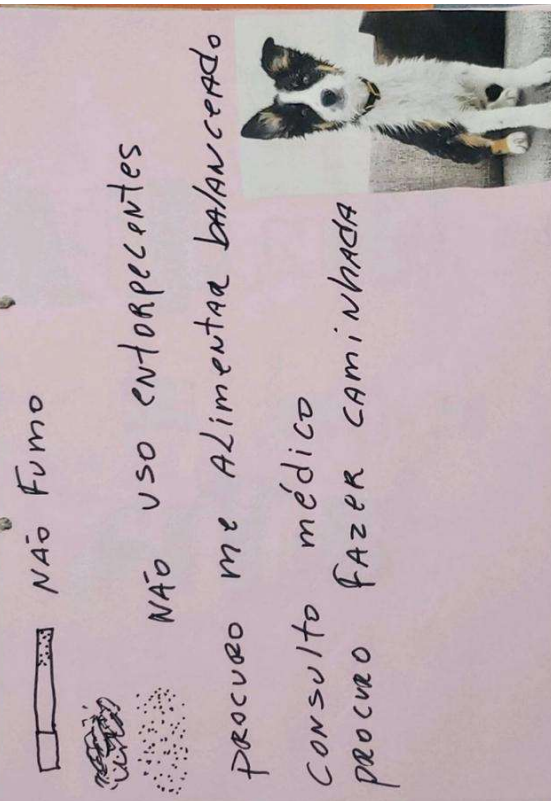 NÃO FUMO
NÃO USO ENTORPECENTES
PROCURO ME ALIMENTAR BALANCEADO
CONSULTO MÉDICO
PROCURO FAZER CAMINHADA